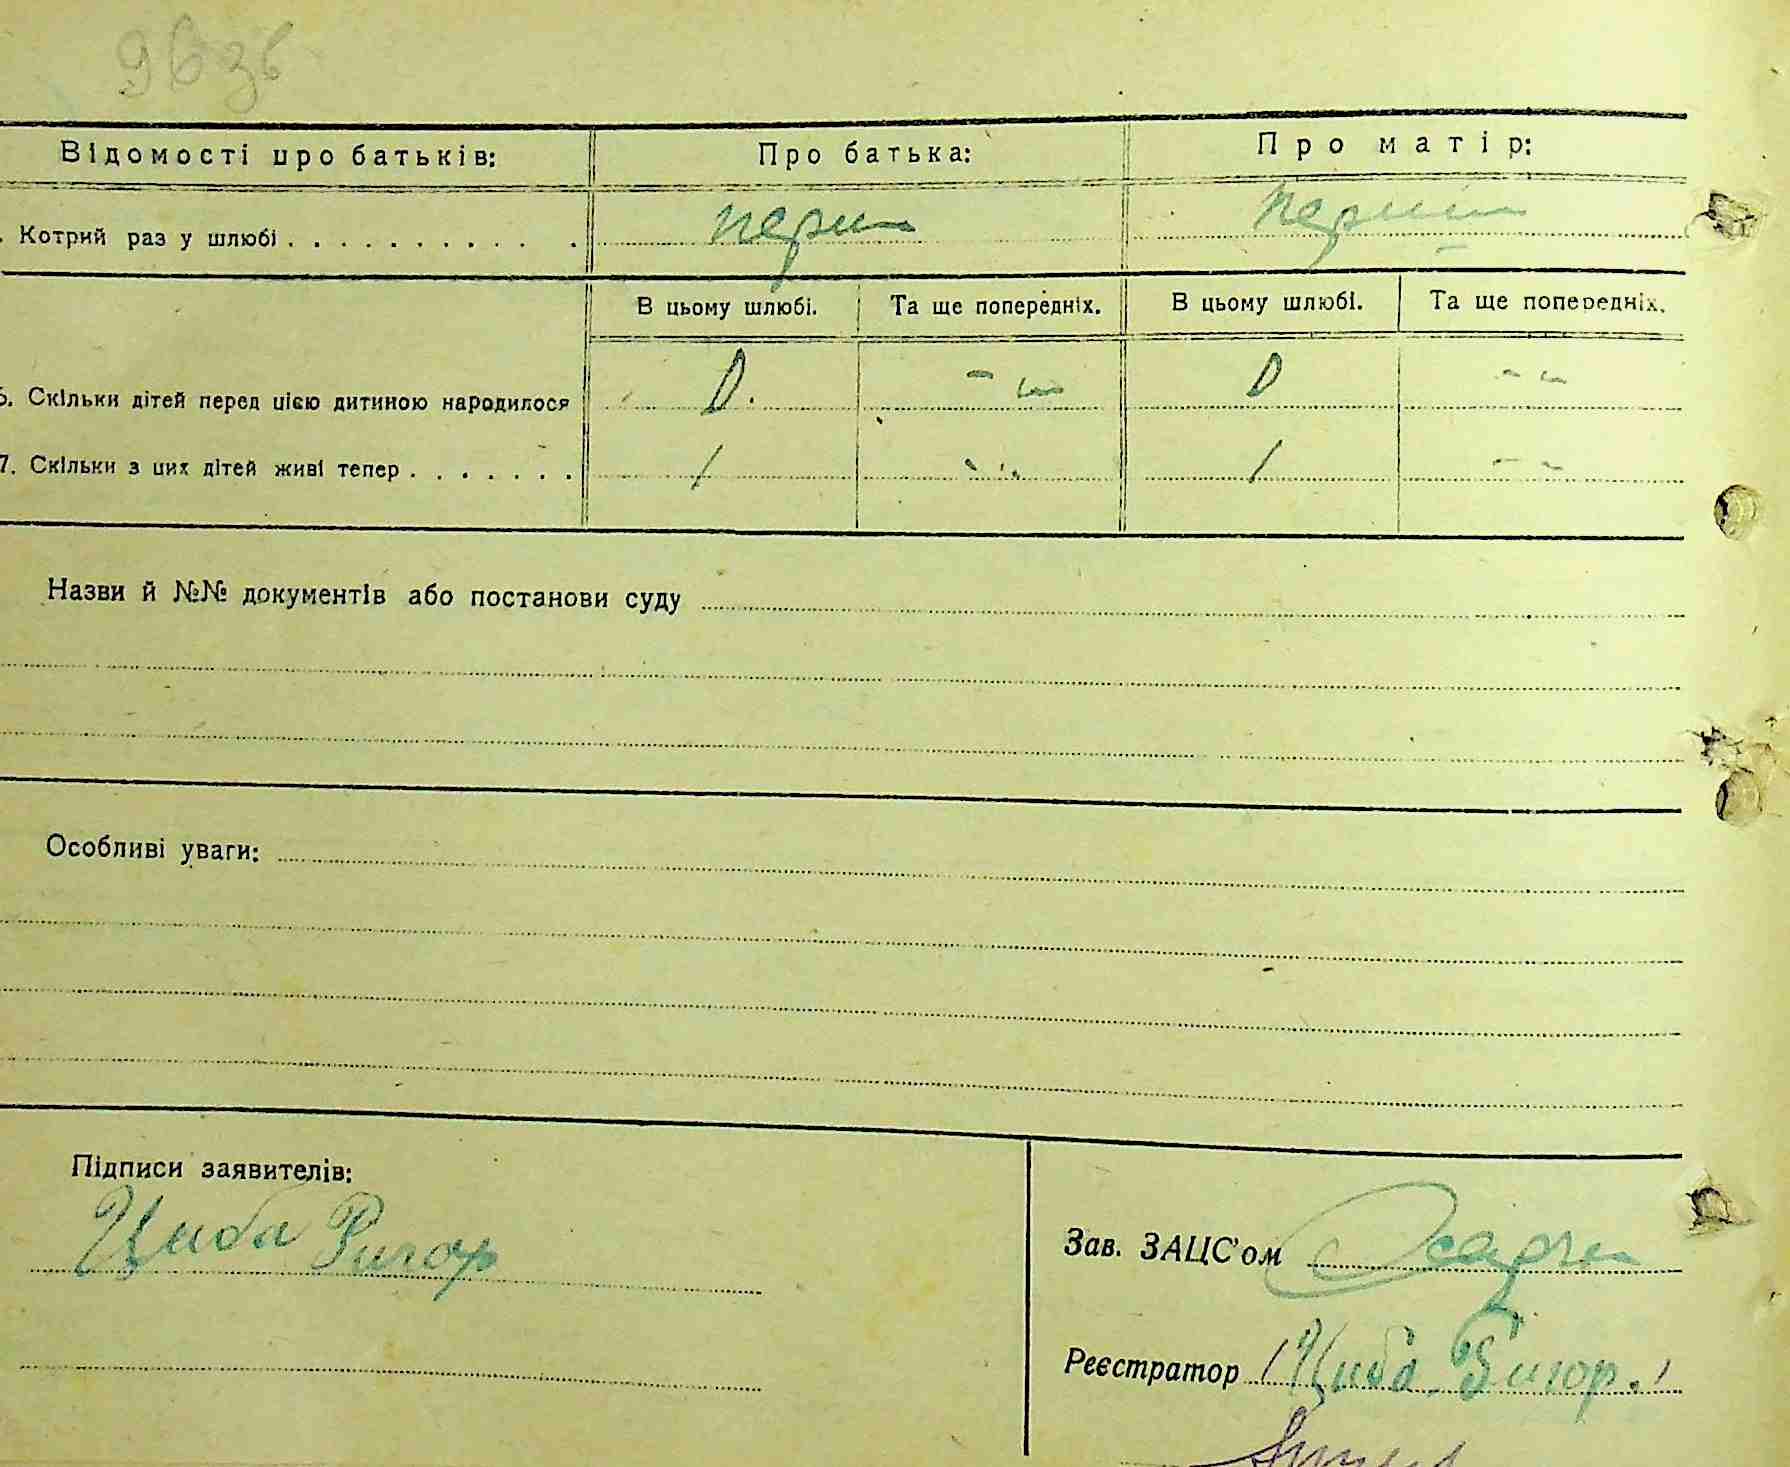 9636
Відомості про батьків: Про батька: Про матір:
. Котрий раз у шлюбі . . . . . . . . . . . перш перший
В цьому шлюбі. Та ще попередніх. В цьому шлюбі. Та ще попередніх.
6. Скільки дітей перед цією дитиною народилося 0. - " 0 - "
7. Скільки з цих дітей живі тепер . . . . . . . / - " / - -
Назви й №№ документів або постанови суду
Особливі уваги:
Підписи заявителів:
Циба Григор
Зав. ЗАЦС'ом
Реєстратор /Циба Григор./